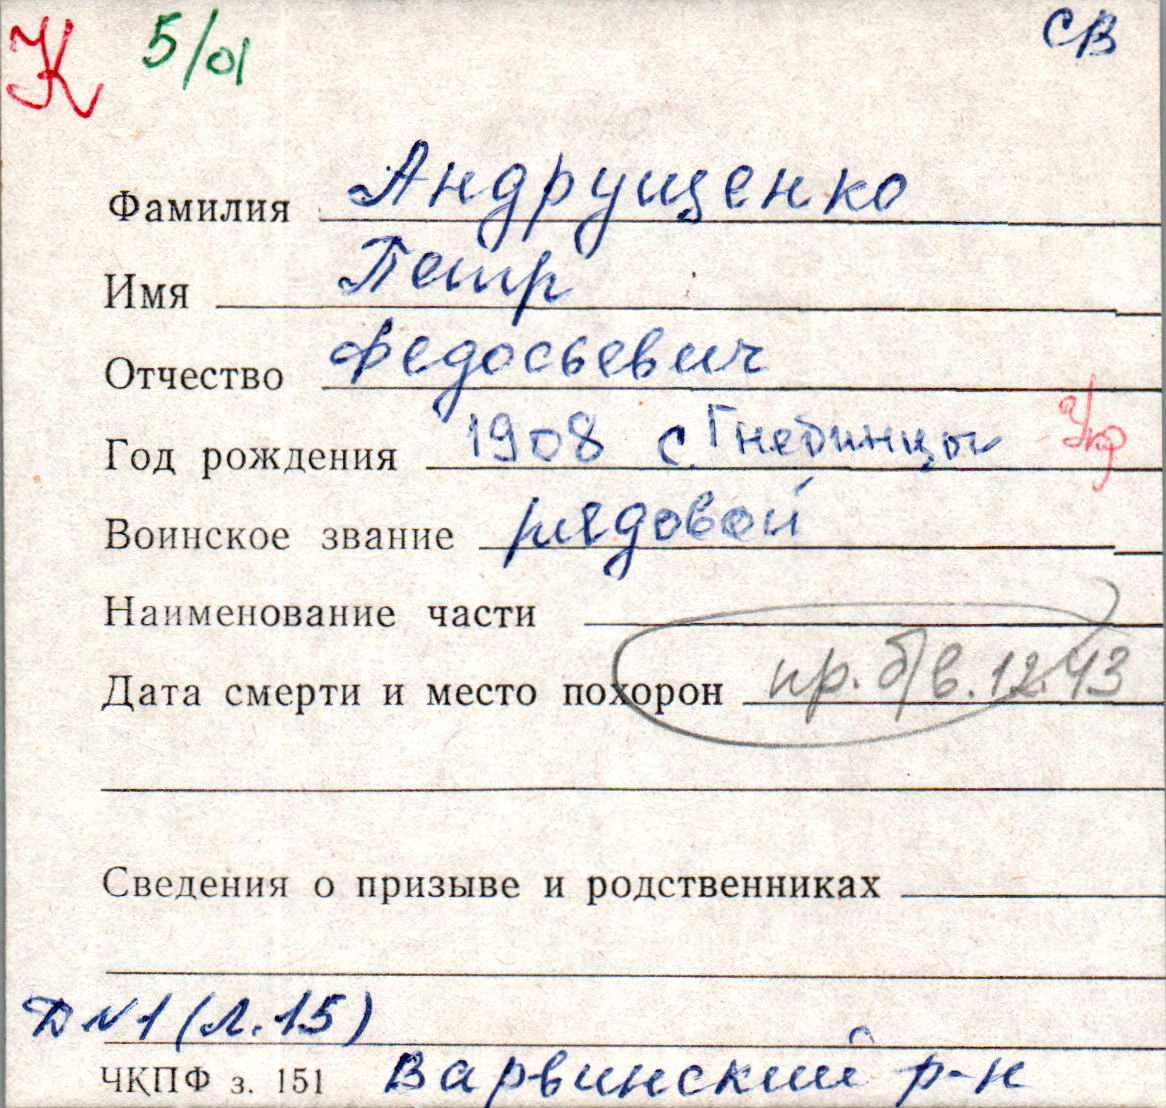 К 5/01 СВ
Фамилия Андрущенко
Имя Петр
Отчество Федосьевич
Год рождения 1908 с. Гнединцы Укр
Воинское звание рядовой
Наименование части
Дата смерти и место похорон пр. б/в. 12.43
Сведения о призыве и родственниках
Д №1 (Л. 15)
ЧКПФ з. 151 Варвинский р-н